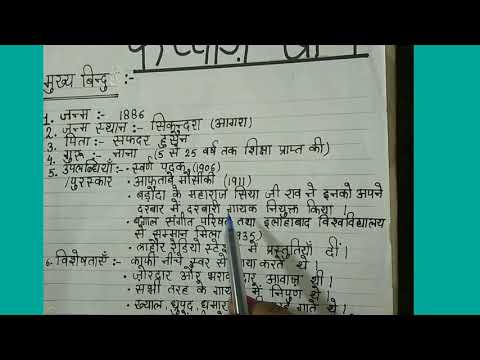 मुख्य बिन्दु :-
1. जन्म :- 1886
2. जन्म स्थान :- सिकन्दरा (आगरा)
3. पिता :- सफदर हुसैन
4. गुरू :- नाना (5 से 25 वर्ष तक शिक्षा प्राप्त की)
5. उपलब्धियाँ :- स्वर्ण पदक (1906)
/पुरस्कार · आफताबे मौसीकी (1911)
· बड़ौदा के महाराज सिया जी राव ने इनको अपने
दरबार में दरबारी गायक नियुक्त किया।
· बंगाल संगीत परिषद तथा इलाहाबाद विश्वविद्यालय
से सम्मान मिला 1935)
· लाहौर रेडियो में प्रस्तुतियाँ दीं।
6. विशेषताएँ :- · काफी नीचे स्वर से गाया करते थे।
· जोरदार और आवाज थी।
· सभी तरह के में निपुण थे।
· ख्याल, ध्रुपद, धमार गाते थे।